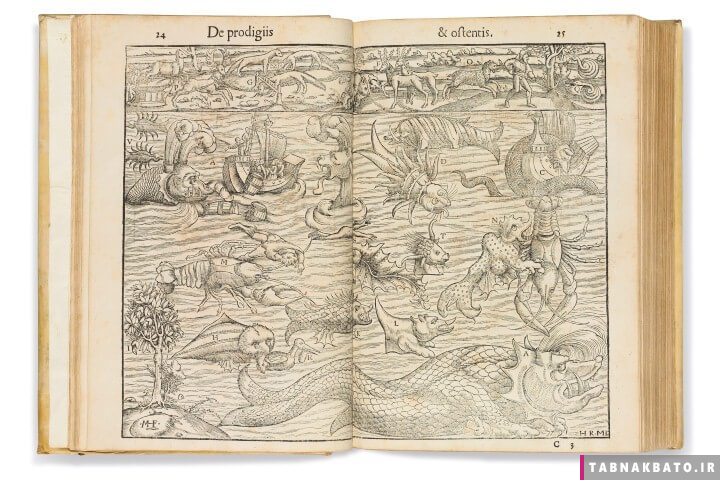 24 De prodigiis
& oſtentis. 25
A
D
C
N
H
L
C 3
TABNAKBATO.IR